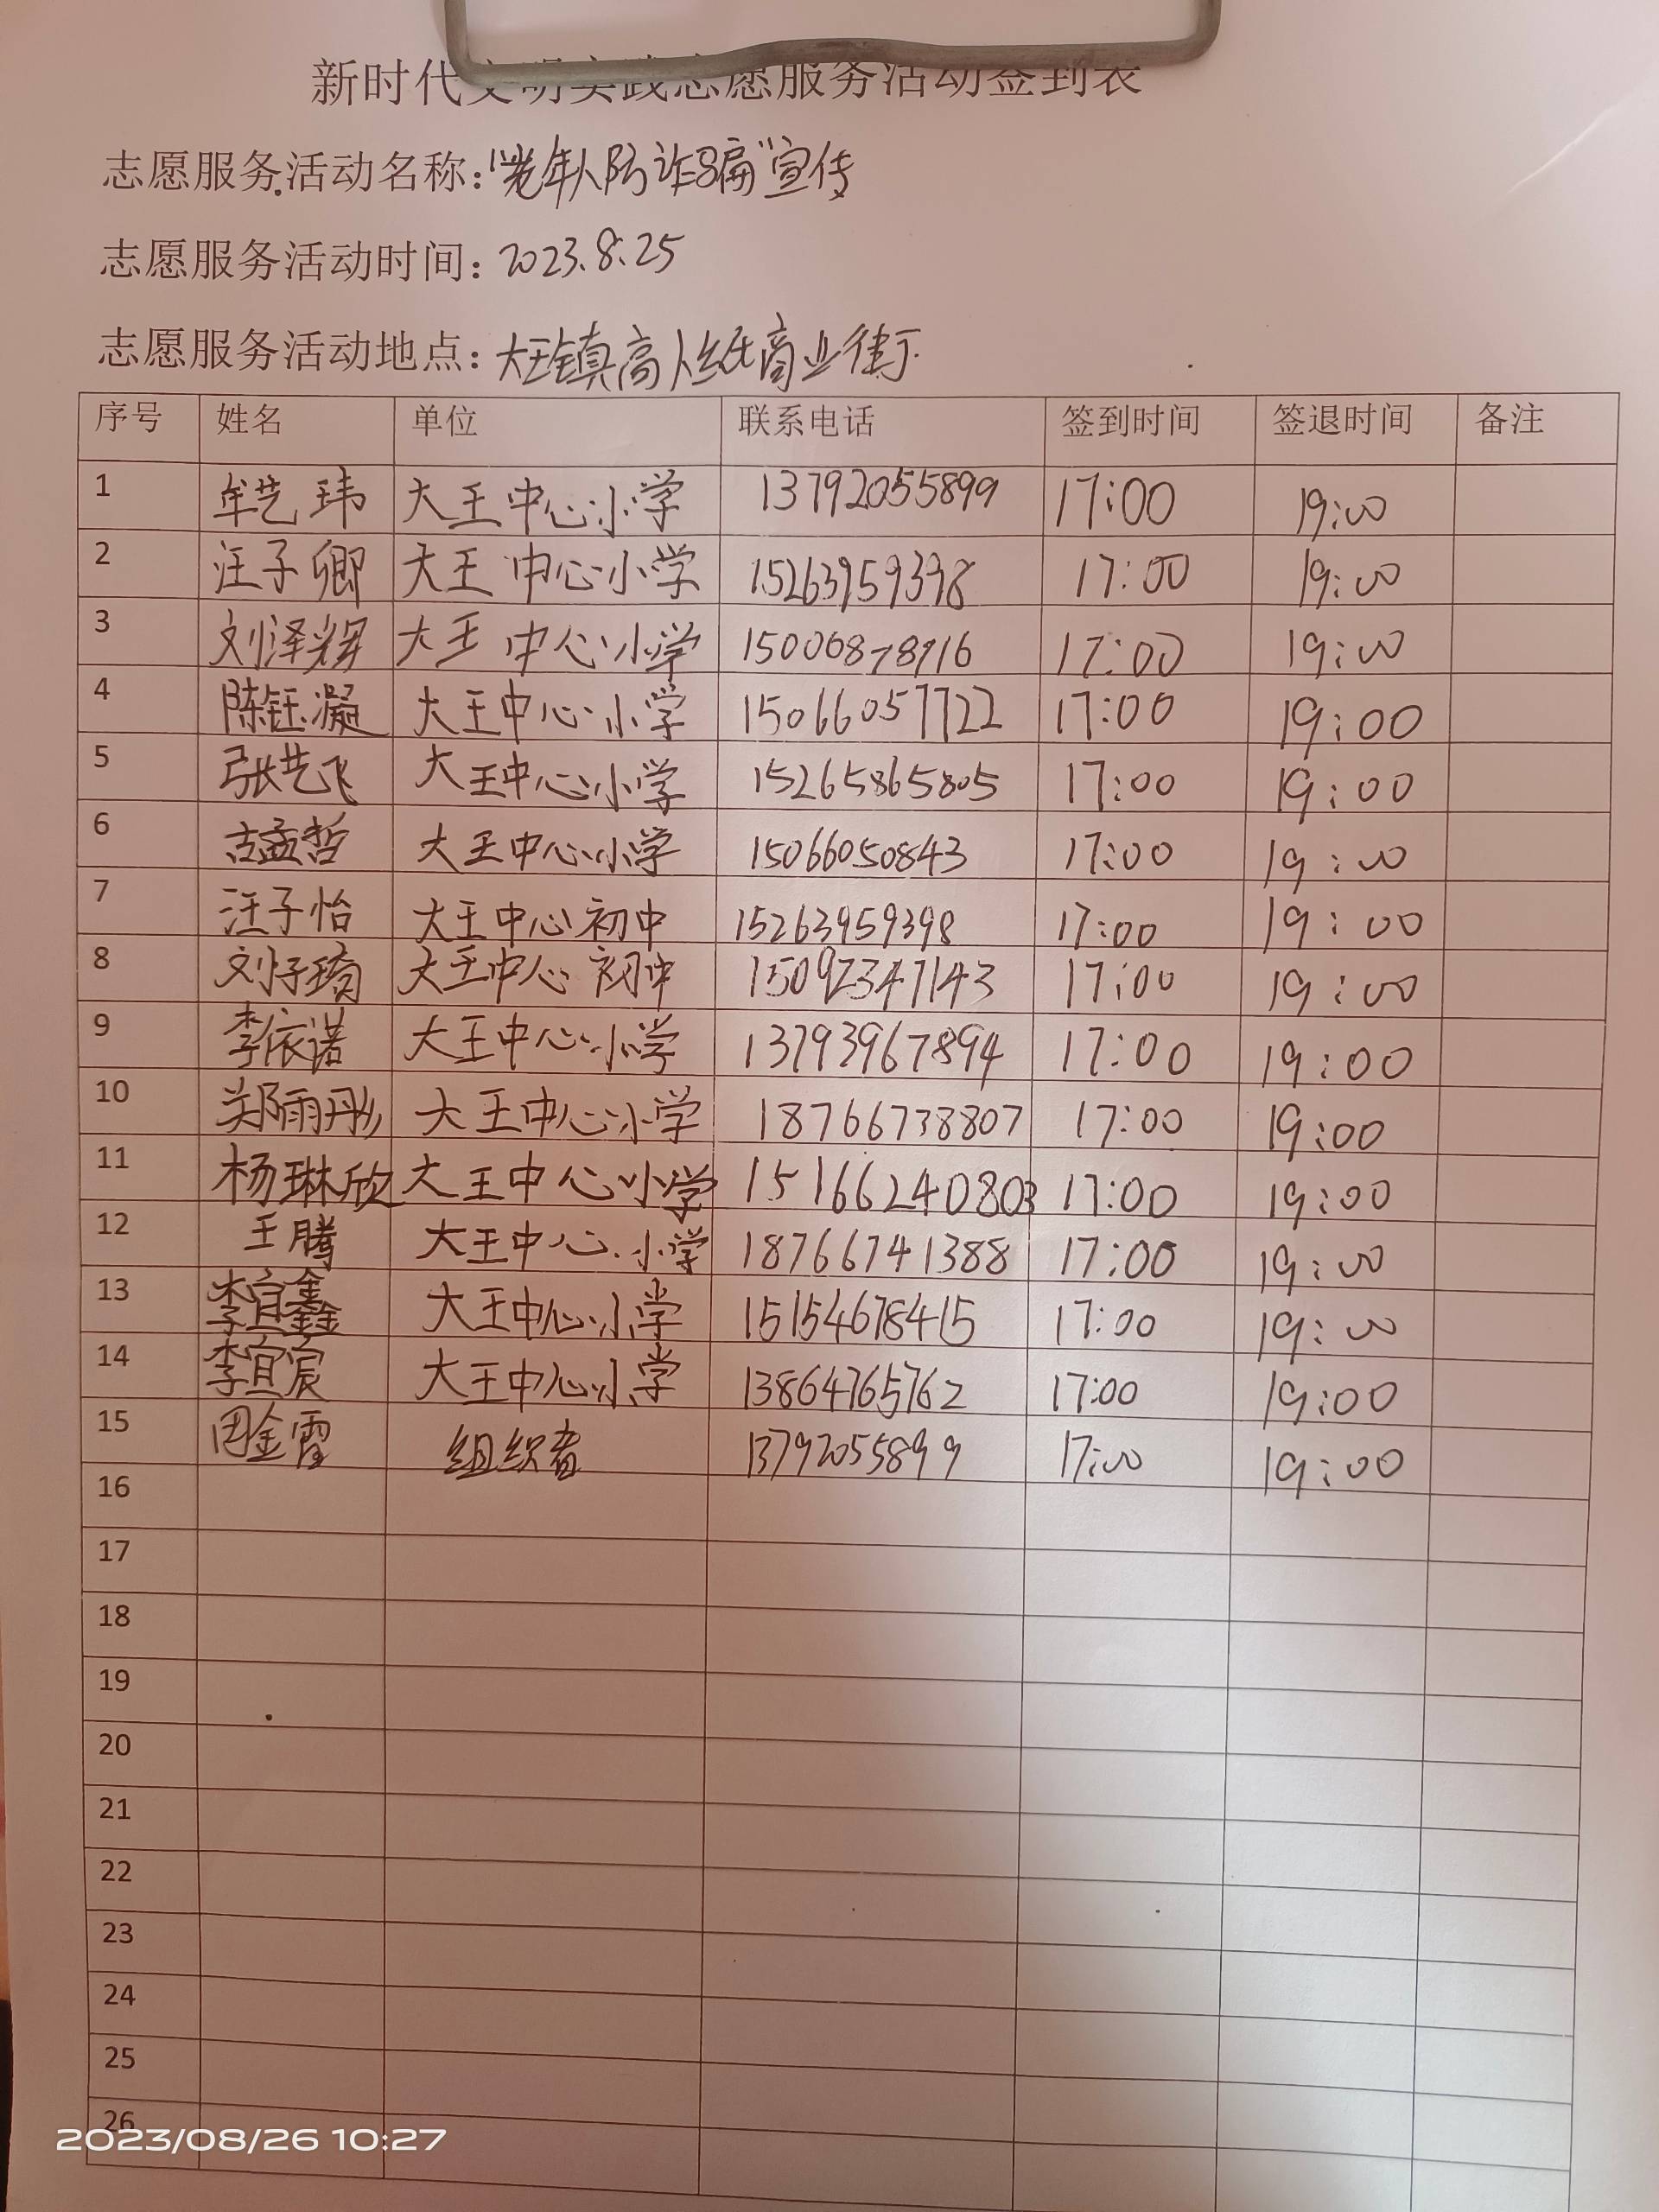 新时代文明实践志愿服务活动签到表
志愿服务活动名称："老年人防诈骗"宣传
志愿服务活动时间：2023.8.25
志愿服务活动地点：大王镇高人纸商业街
序号 姓名 单位 联系电话 签到时间 签退时间 备注
1 牟艺玮 大王中心小学 13792055899 17:00 19:00
2 汪子卿 大王中心小学 15263959398 17:00 19:00
3 刘泽辉 大王中心小学 15006878916 17:00 19:00
4 陈钰凝 大王中心小学 15066057722 17:00 19:00
5 张艺飞 大王中心小学 15265865805 17:00 19:00
6 古孟哲 大王中心小学 15066050843 17:00 19:00
7 汪子怡 大王中心初中 15263959398 17:00 19:00
8 刘子琦 大王中心初中 15092347143 17:00 19:00
9 李依诺 大王中心小学 13793967894 17:00 19:00
10 郑雨彤 大王中心小学 18766738807 17:00 19:00
11 杨琳欣 大王中心小学 15166240803 17:00 19:00
12 王腾 大王中心小学 18766741388 17:00 19:00
13 李宜鑫 大王中心小学 15154678415 17:00 19:00
14 李宜宸 大王中心小学 13864765762 17:00 19:00
15 田金霞 组织者 13792055899 17:00 19:00
16
17
18
19
20
21
22
23
24
25
26
2023/08/26 10:27